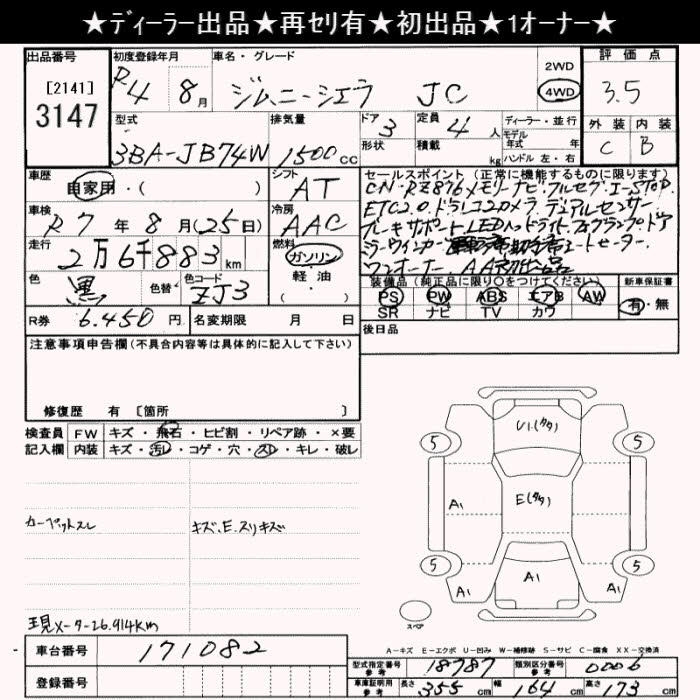 ★ディーラー出品★再セリ有★初出品★1オーナー★
出品番号 初度登録年月 車名・グレード 評価点
[2141]
3147
R4 8月 ジムニーシエラ JC
2WD
4WD
3.5
型式 排気量 ドア 定員 ディーラー・並行 外装 内装
3BA-JB74W 1500cc 3 4人 モデル年式 年 C B
形状 積載 kg ハンドル 左・右
車歴 シフト セールスポイント(正常に機能するものに限ります)
自家用・( ) AT CN・RZ876メモリーナビ・フルセグ・I-STOP
車検 冷房 ETC2.0・ドラレコ・カメラ・デュアルセンサー
R7年8月(25日) AAC ブレーキサポート・LEDヘッドライト・フォグランプ・ドア
走行 燃料 ミラーウインカー シートヒーター
2万6千883km ガソリン ワンオーナー・AA初出品
軽油
色 色替 色コード
黒 ZJ3
装備品(純正品に限り○をつけてください) 新車保証書
PS PW ABS エアB AW 有・無
SR ナビ TV カワ
R券 6.450円 名変期限 月 日
後日品
注意事項申告欄(不具合内容等は具体的に記入して下さい)
修復歴 有 〔箇所 〕
検査員 FW キズ・飛石・ヒビ割・リペア跡・×要
記入欄 内装 キズ・汚レ・コゲ・穴・スレ・キレ・破レ
U1.(タタ)
5 5
A1 E(タタ)
カーペットスレ キズ、E、スリキズ
5 5
A1 A1 A1
スペア
現メーター26.914km
A-キズ E-エクボ U-凹み W-補修跡 S-サビ C-腐食 XX-交換済
車台番号 171082
型式指定番号 参考 18787 類別区分番号 参考 0006
登録番号
車庫証明用 参考 長さ 355cm 幅 164cm 高さ 173cm